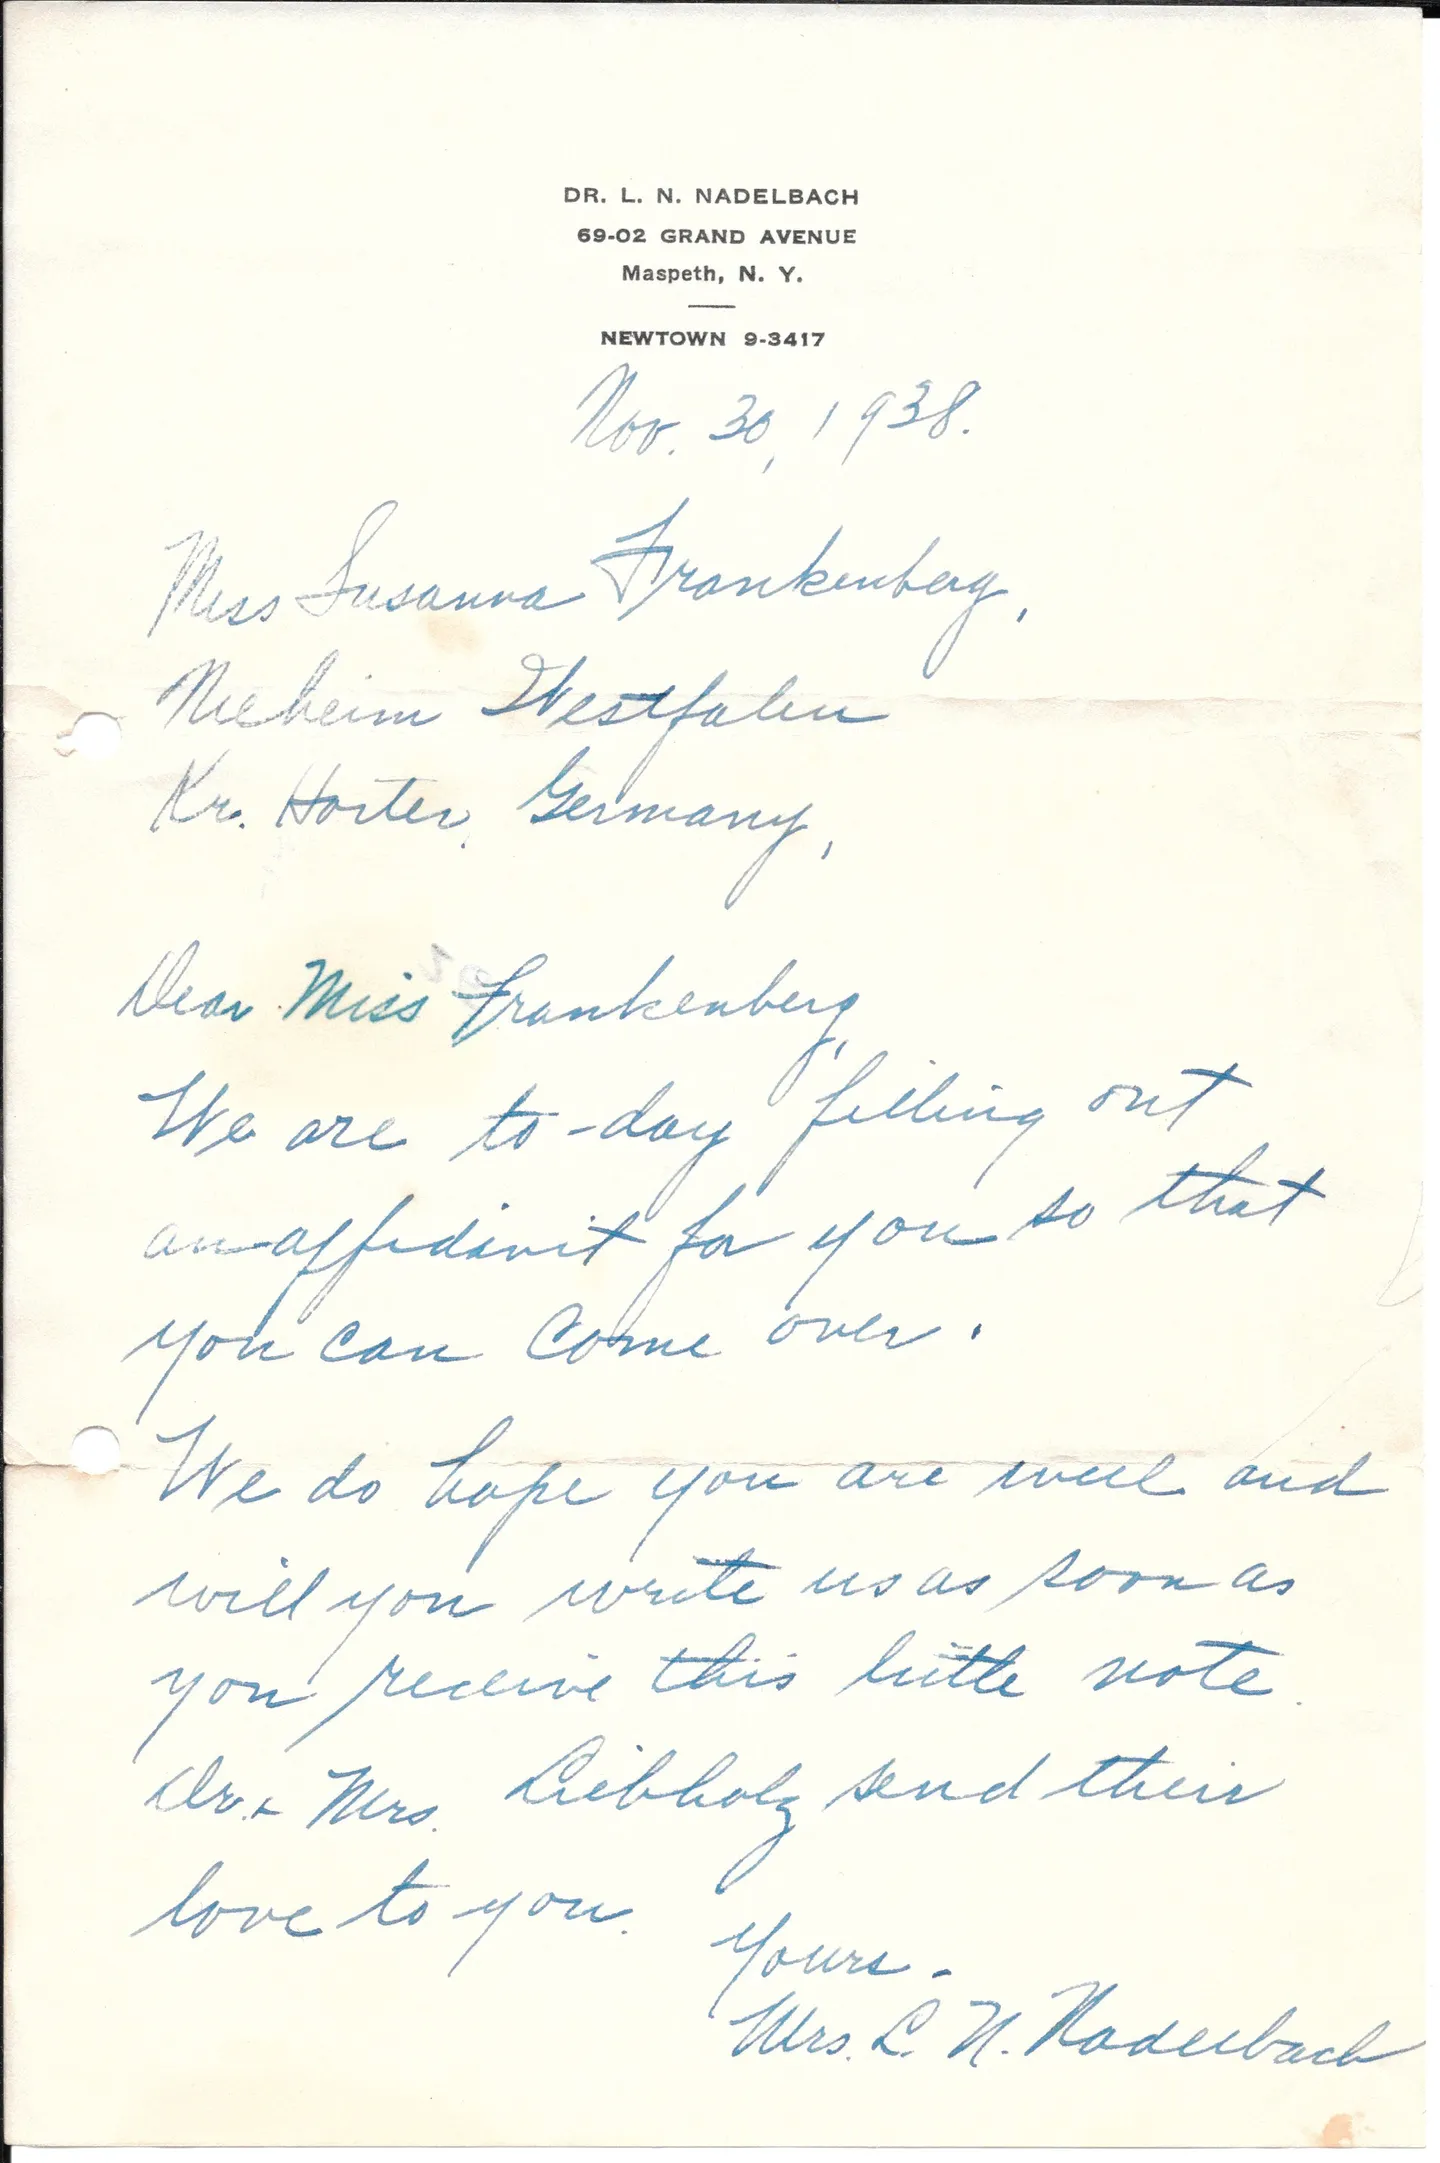 DR. L. N. NADELBACH
69-02 GRAND AVENUE
Maspeth, N. Y.
NEWTOWN 9-3417
Nov. 30, 1938.
Miss Susanna Frankenberg,
Nieheim Westfalen
Kr. Hoxter, Germany,
Dear Miss Frankenberg,
We are to-day filling out
an affidavit for you so that
you can come over.
We do hope you are well and
will you write us as soon as
you receive this little note.
Dr. + Mrs. Liebholz send their
love to you.
Yours -
Mrs. L. N. Nadelbach